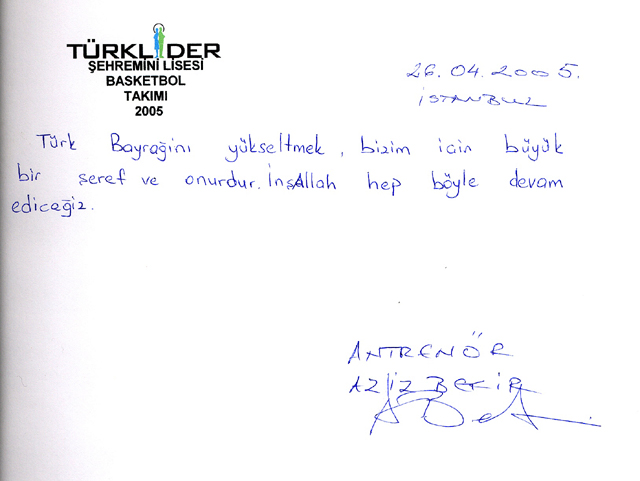 TÜRKLİDER
ŞEHREMİNİ LİSESİ
BASKETBOL
TAKIMI
2005
26.04.2005.
İSTANBUL
Türk Bayrağını yükseltmek, bizim için büyük
bir şeref ve onurdur. İnşAllah hep böyle devam
ediceğiz.
ANTRENÖR
AZİZ BEKİR